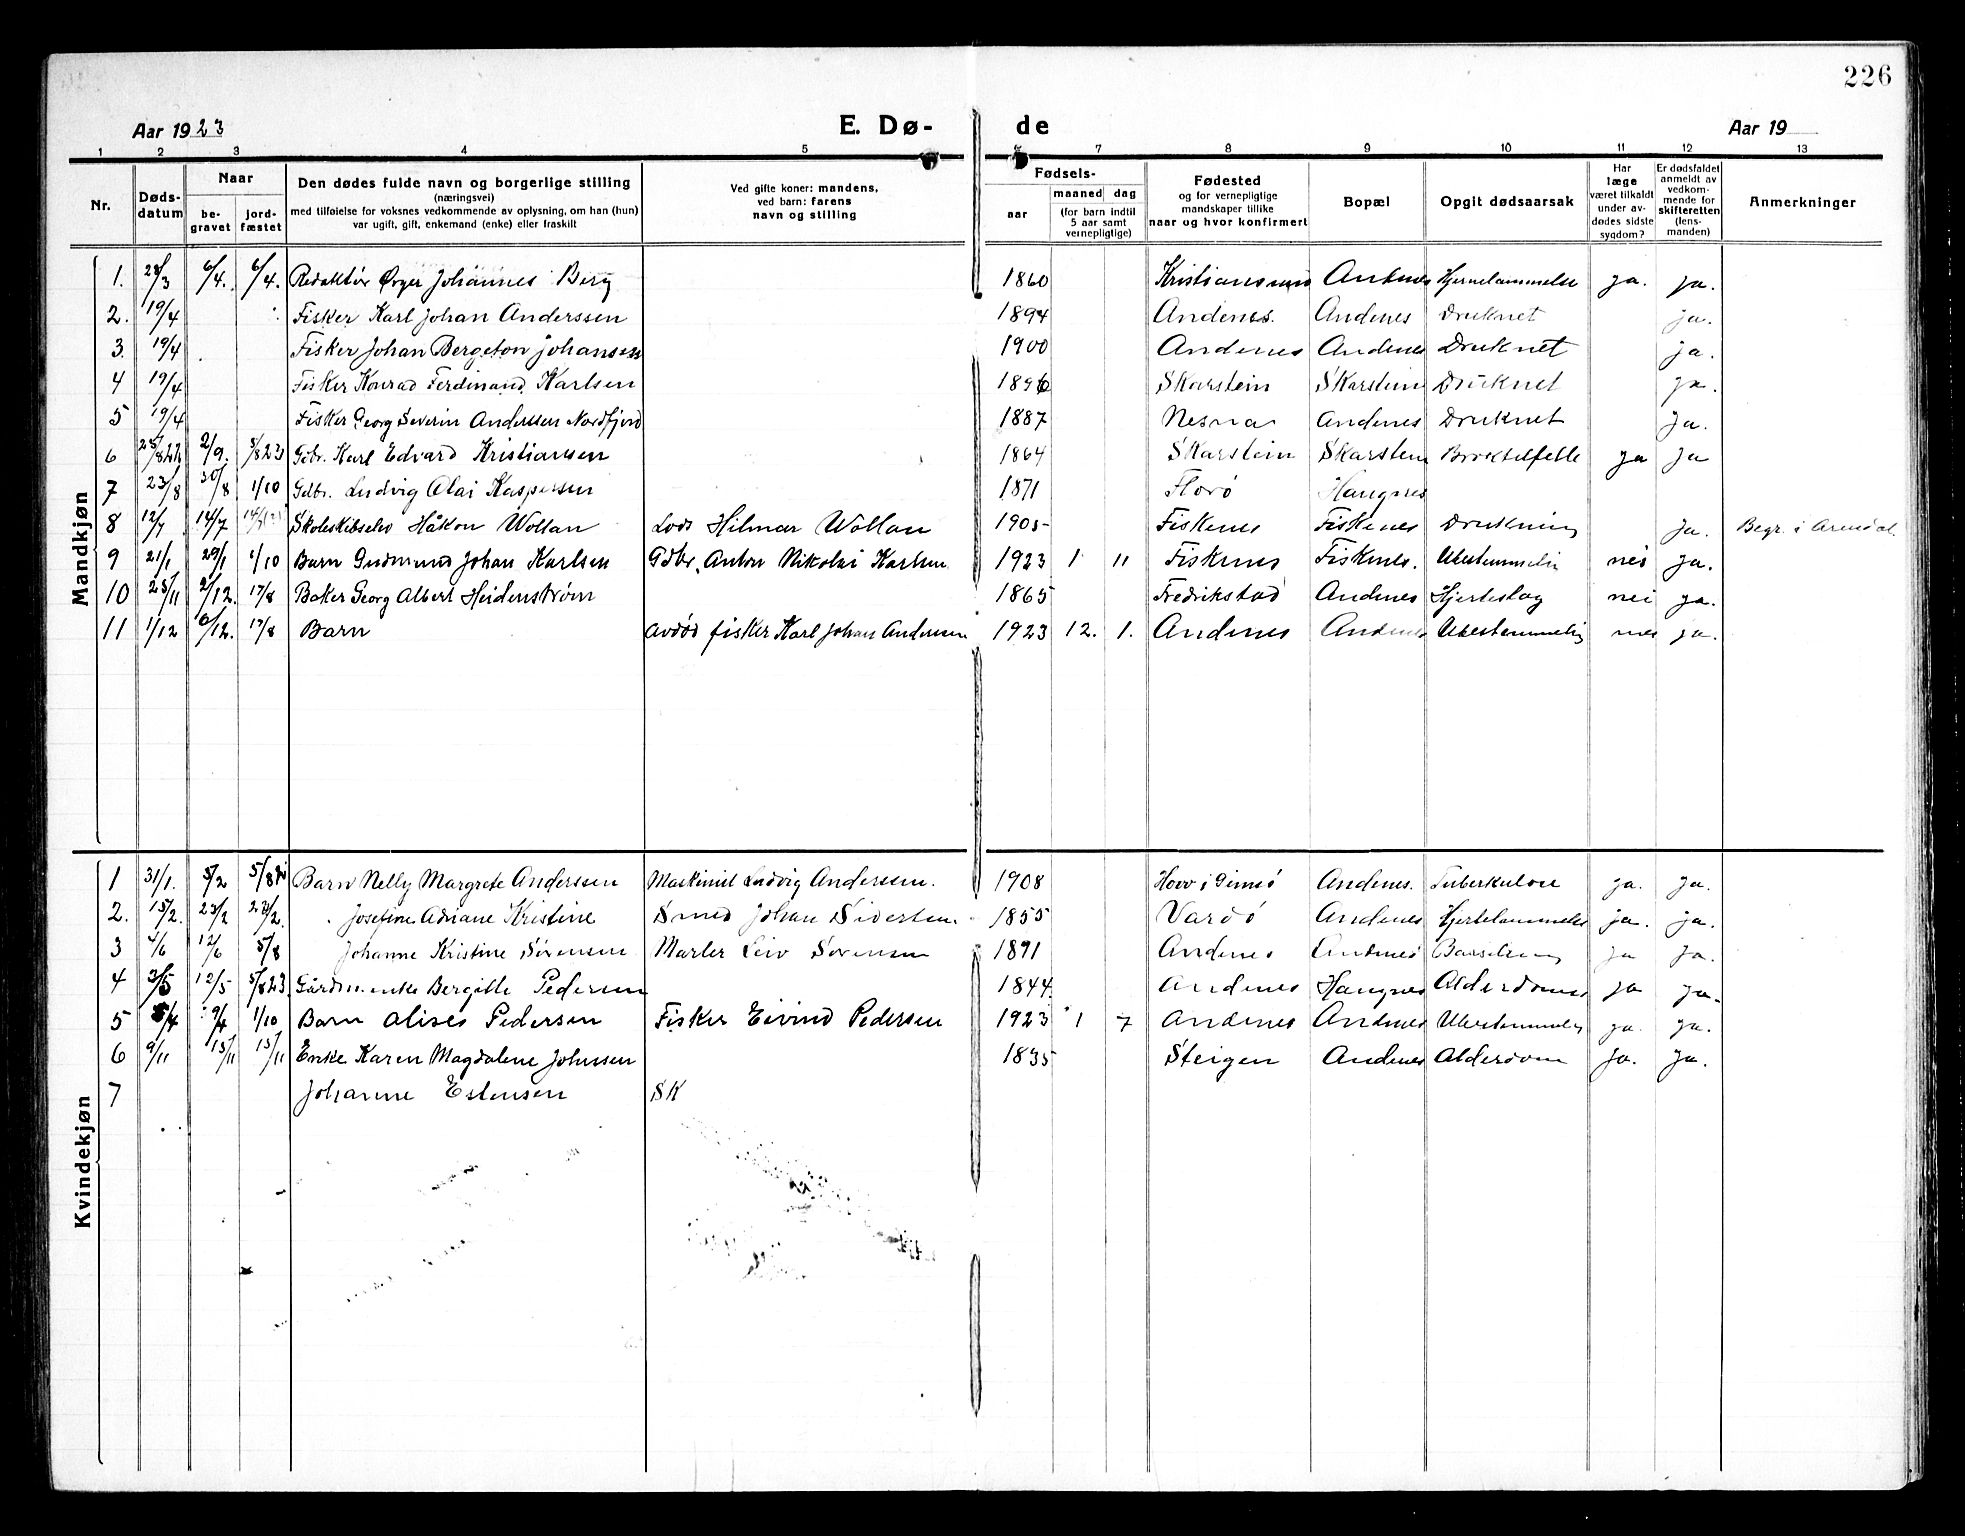 226
Aar 1923 E. Dø- de Aar 19
1 2 3 4 5 7 8 9 10 11 12 13
Nr. Døds-datum Naar be-gravet jord-fæstet Den dødes fulde navn og borgerlige stilling (næringsvei) med tilføielse for voksnes vedkommende av oplysning, om han (hun) var ugift, gift, enkemand (enke) eller fraskilt Ved gifte koner: mandens, ved barn: farens navn og stilling Fødsels- aar maaned dag (for barn indtil 5 aar samt vernepligtige) Fødested og for vernepligtige mandskaper tillike naar og hvor konfirmert Bopæl Opgit dødsaarsak Har læge været tilkaldt under av-dødes sidste sygdom? Er dødsfaldet anmeldt av vedkom-mende for skifteretten (lens-manden) Anmerkninger
Mandkjøn
1. 28/3 6/4. 6/4. Redaktør Ørger Johannes Berg 1860 Kristiansund Andenes Hjernelammelse ja. ja.
2. 19/4 Fisker Karl Johan Anderssen 1894 Andenes. Andenes Druknet ja.
3. 19/4 Fisker Johan Bergeton Johansen 1900 Andenes Andenes Druknet ja.
4 19/4 Fisker Konrad Ferdinand Karlsen 1896 Skarstein Skarstein Druknet ja.
5 19/4 Fisker Georg Severin Anderssen Nordfjord 1887 Nesna Andenes Druknet ja.
6 25/8 22 2/9. 5/8 23 Gdbr. Karl Edvard Kristiansen 1864 Skarstein Skarstein Broktilfelle ja ja
7 23/8 30/8 1/10 Gdbr. Ludvig Olai Kaspersen 1871 Florø Haugnes
8 12/7 14/7 14/7 Skoleskibselev Håkon Wollan Lods Hilmar Wollan 1905 Fiskenes Fiskenes Drukning ja. Begr. i Arendal.
9 21/1 29/1 1/10 Barn Gudmund Johan Karlsen Gdbr. Anton Nikolai Karlsen 1923 1 11 Fiskenes Fiskenes. Ubestemmelig nei ja.
10 25/11 2/12. 17/8 Baker Georg Albert Heidenstrøm 1865 Fredrikstad Andenes Hjerteslag nei ja.
11 1/12 6/12. 17/8 Barn avdød fisker Karl Johan Andersen 1923 12. 1. Andenes Andenes Ubestemmelig nei ja.
Kvindekjøn
1 31/1. 5/2 5/8 Barn Nelly Margrete Anderssen Maskinist Ludvig Anderssen. 1908 Hov i Gimsø Andenes. Tuberkulose ja. ja.
2. 15/2. 23/2 23/2. Josefine Adriane Kristine Smed Johan Sivertsen 1855 Vardø Andenes Hjertelammelse ja. ja.
3 4/6 12/6 5/8 Johanne Kristine Sørensen Maler Leiv Sørensen 1891 Andenes Andenes Barselseng ja ja.
4 3/5 12/5 5/8 23. Gårdmenke Bergitte Pedersen 1844. Andenes Haugnes Alderdomss ja ja.
5 5/4 9/4 1/10 Barn Alises Pedersen Fisker Eivind Pedersen 1923 1 7 Andenes Andenes Ubestemmelig ja. ja.
6 9/11 15/11 15/11 Enke Karen Magdalene Johnssen 1835 Steigen Andenes Alderdom ja. ja.
7 Johanne Estensen SK